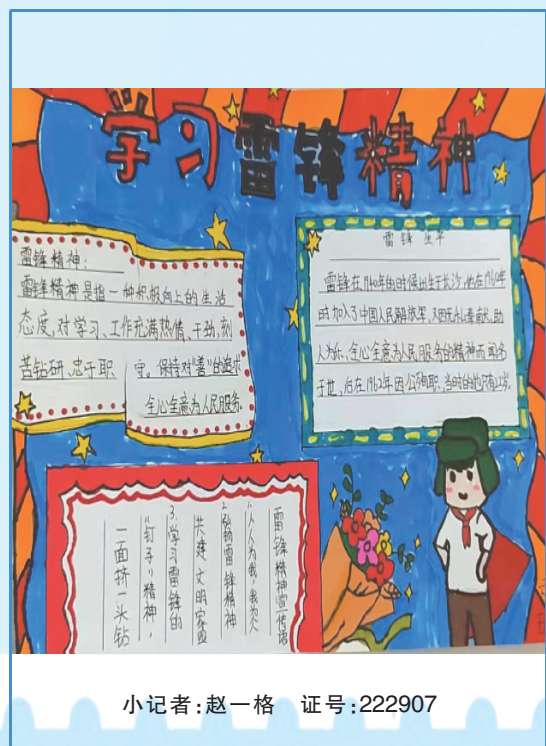 学习雷锋精神
雷锋精神:
雷锋精神是指一种积极向上的生活
态度,对学习、工作充满热情、干劲,刻
苦钻研、忠于职守。保持对"善"的追求
全心全意为人民服务。
雷锋生平
雷锋在1940年的时候出生于长沙,他在1960年
时加入了中国人民解放军,又因无私奉献、助
人为乐、全心全意为人民服务的精神而闻名
于世,后在1962年因公殉职,当时的他只有22岁。
雷锋精神宣传语
1、人人为我,我为人人
2、弘扬雷锋精神
共建文明家园
3、学习雷锋的
"钉子"精神,
一面挤一头钻
小记者:赵一格 证号:222907